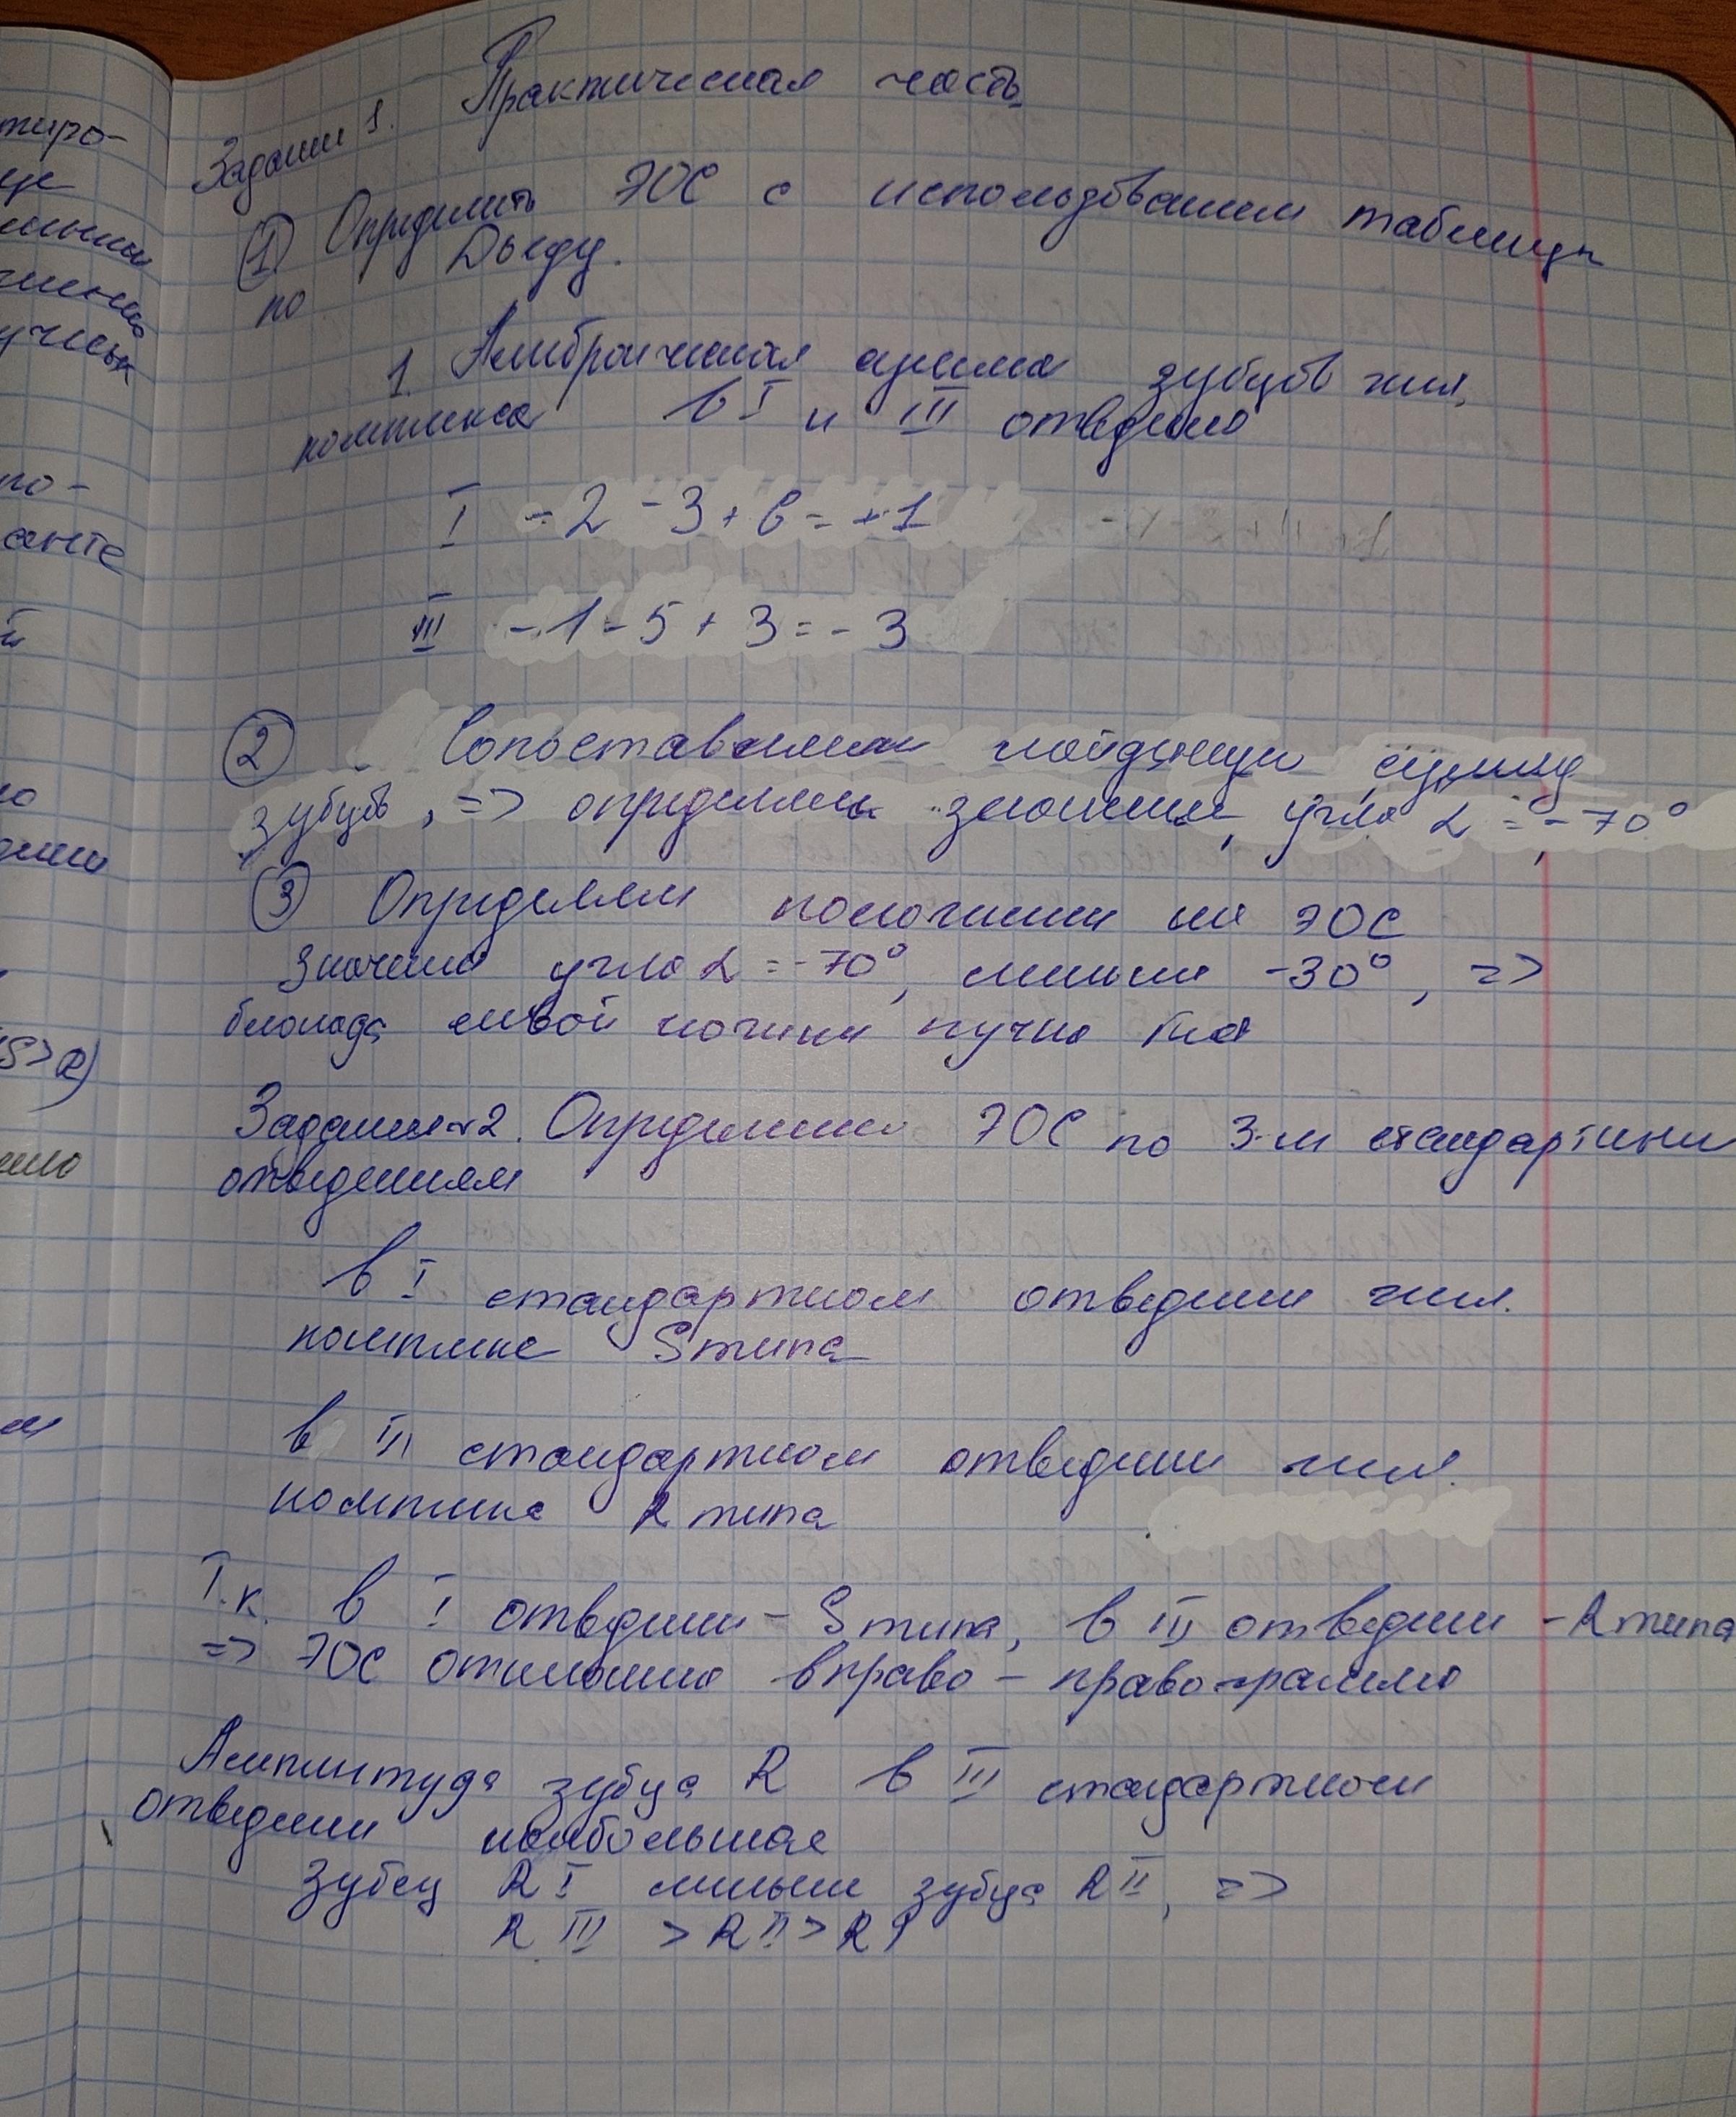 тиро-
це
по-
анте
й
S>R)
Практическая часть
Задание 1.
① Определить ЭОС с использованием таблицы
по Дьеду.
1. Алгебраическая сумма зубцов жел.
комплекса в I и III отведению
I -2 -3 + 6 = +1
III -1 -5 + 3 = -3
② Сопоставляем найденную сумму
зубцов, => определяем значение, угла α = -70°
③ Определяем положение ЭОС
Значение угла α = -70°, меньше -30°, =>
блокада левой ножки пучка Гиса
Задание №2. Определение ЭОС по 3-м стандартным
отведениям
в I стандартном отведении жел.
комплекс S типа
в III стандартном отведении жел.
комплекс R типа
Т.к. в I отведении - S типа, в III отведении - R типа
=> ЭОС отклонена вправо - правограмма
Амплитуда зубца R в III стандартном
отведении наибольшая
Зубец R I меньше зубца R II, =>
R III > R II > R I